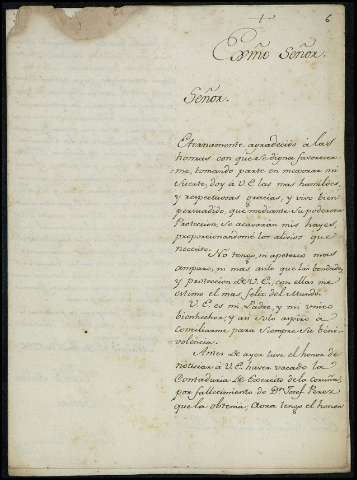 6
Exmo Señor.
Señor.
Eternamente agradecido à las
honras con que se digna favorecer
me, tomando parte en mexorar mi
Suerte, doy à V.E. las mas humildes,
y respectuosas gracias, y vivo bien
persuadido, que mediante su poderosa
Proteccion, se acavarán mis hayes,
proporcionandome los alivios que
necesito.
No tengo, ni apetezco mas
amparo, ni mas asilo que las bondades,
y proteccion de V.E., con ellas me
estimo el mas feliz del Mundo.
V.E. es mi Padre, y mi unico
bienhechor, y asi solo aspiro a
conciliarme para siempre su bene-
volencia.
Antes de ayer tuve el honor de
noticiar à V.E. haver vacado la
Contaduria de Exercito de la Coruña,
por fallecimiento de Dn. Josef Perez
que la obtenia; Aora tengo el honor